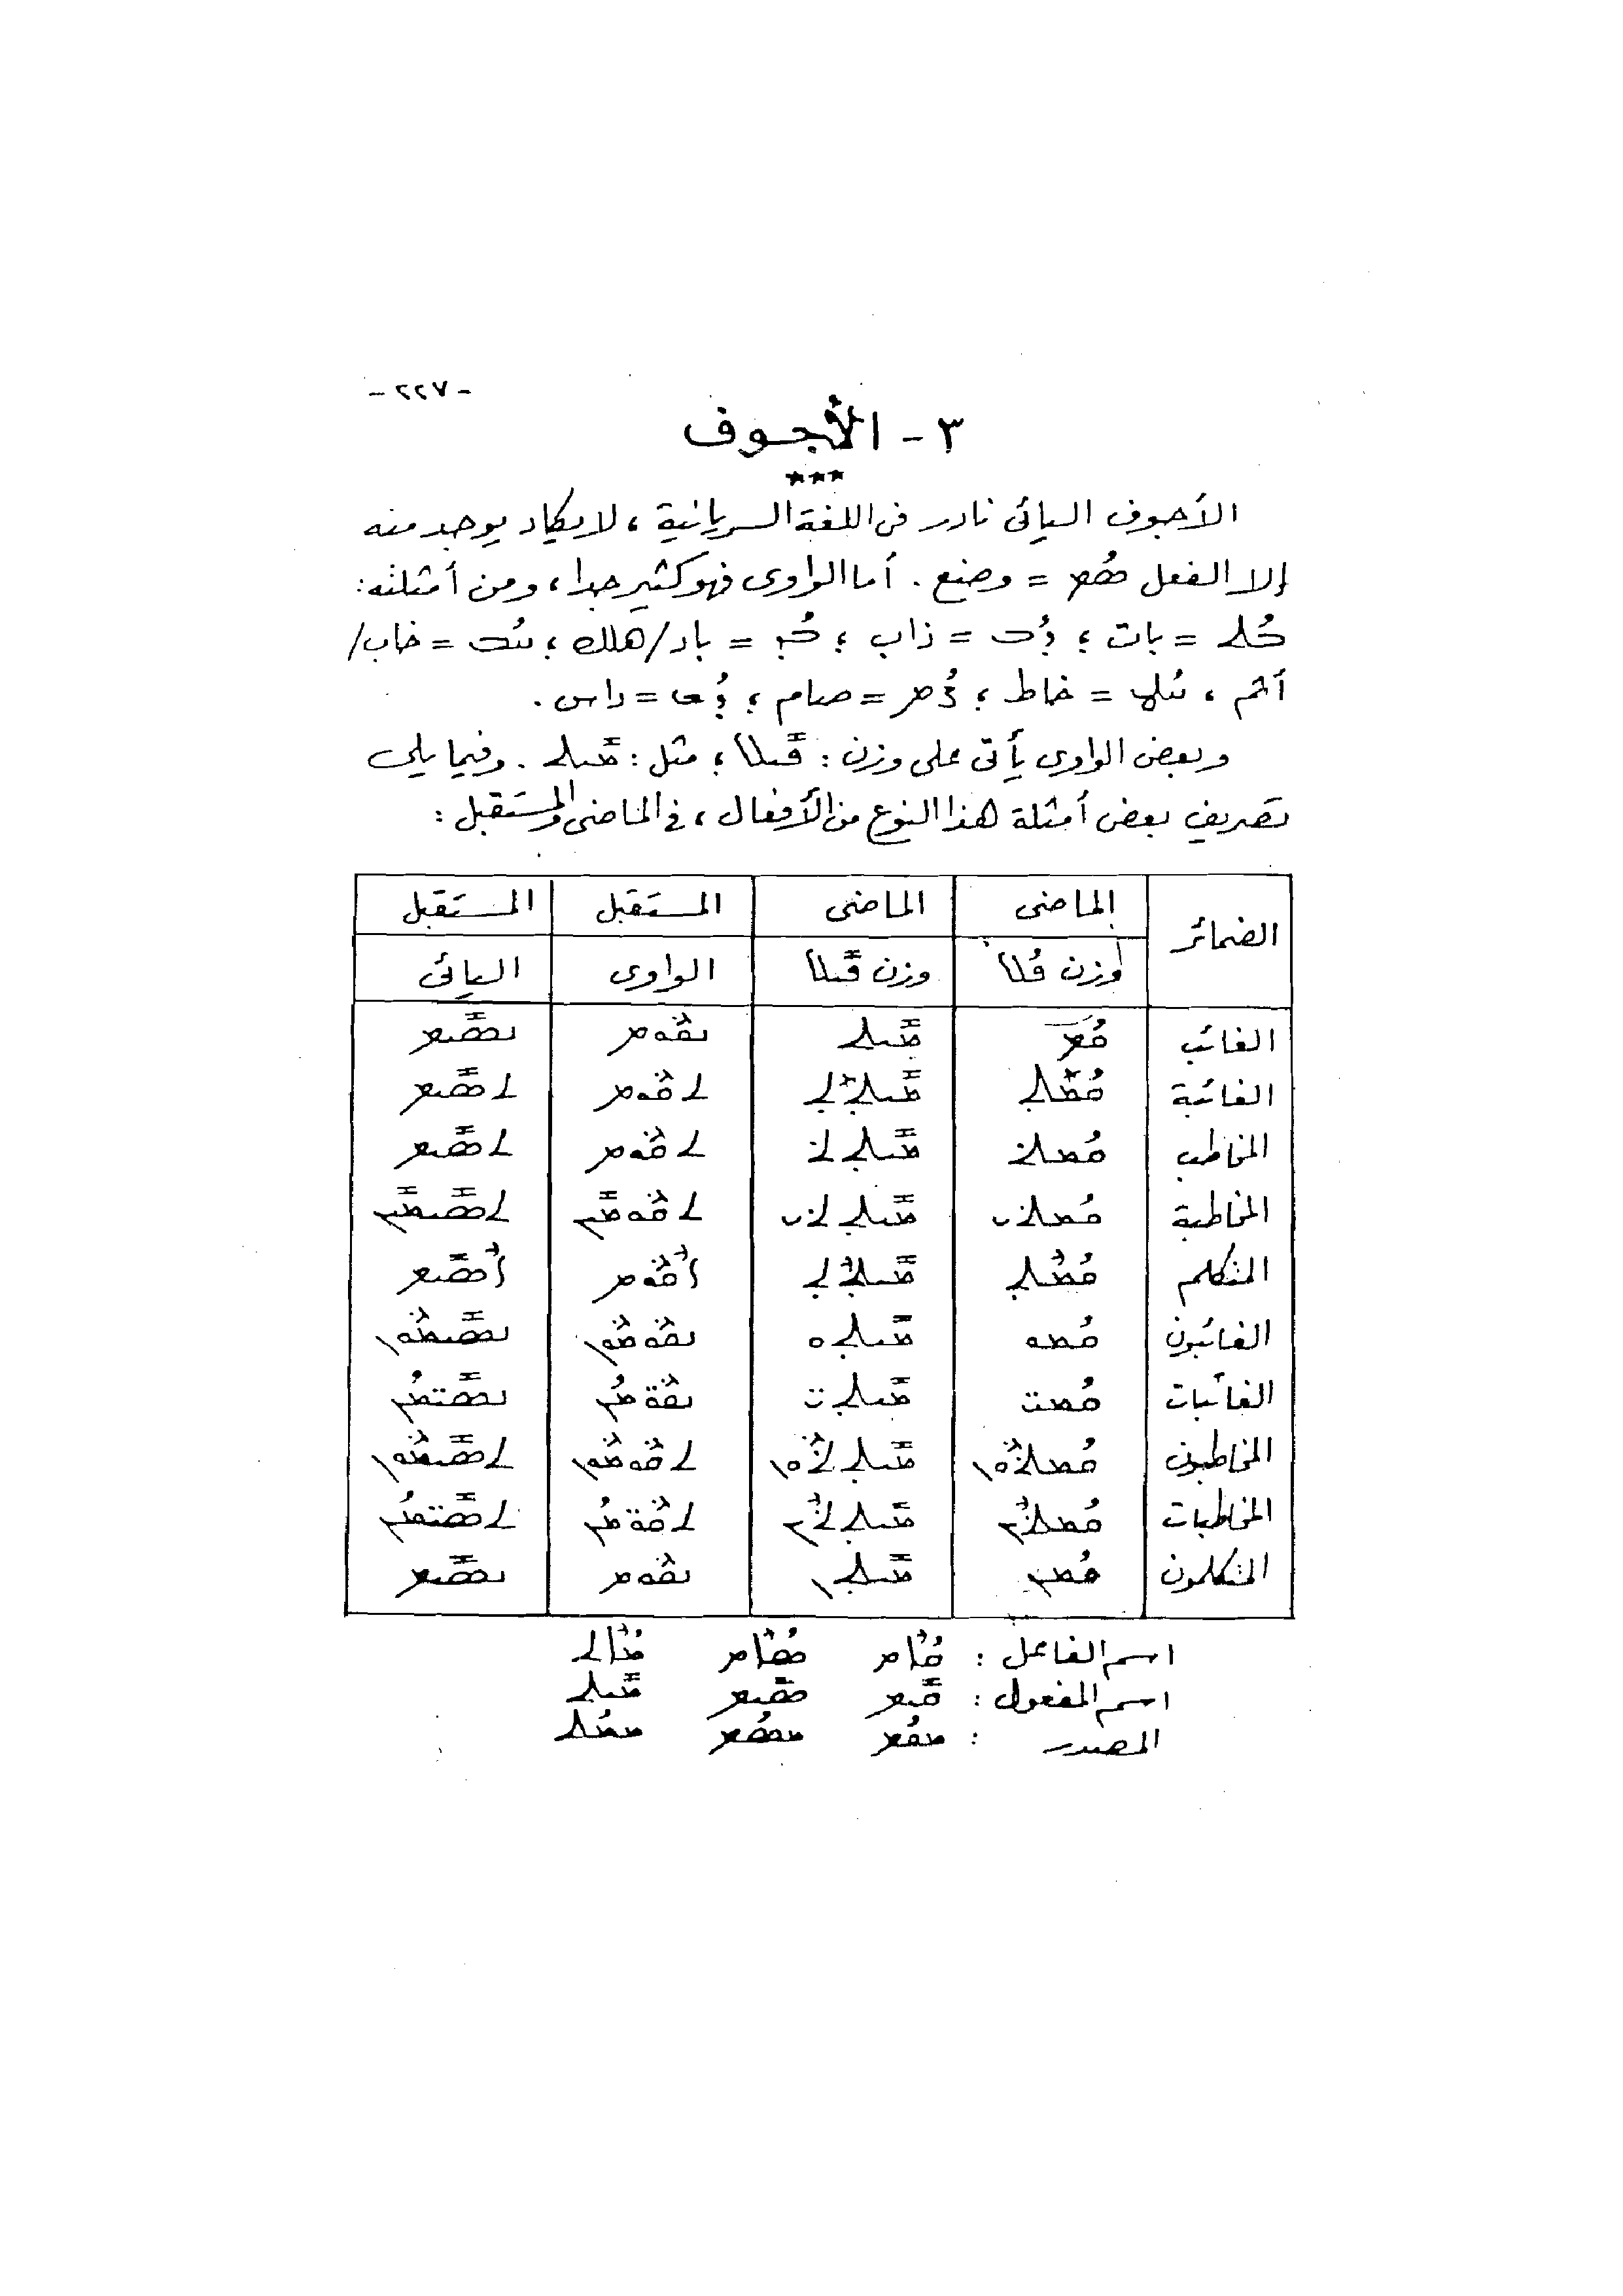 - ٢٢٧ -
٣ - الأجوف
***
الأجوف اليائى نادر فى اللغة السريانية ، لا يكاد يوجد منه
إلا الفعل ܣܳܡ = وضع . أما الواوى فهو كثير جدا ، ومن أمثلته :
ܒܳܬ = بات ؛ ܕܳܒ = ذاب ؛ ܒܳܕ = باد/هلك ؛ ܚܳܒ = خاب/
أثم ، ܚܳܛ = خاط ؛ ܨܳܡ = صام ؛ ܕܳܫ = داس .
وبعض الواوى يأتى على وزن : ܩܺܝܠܐ ؛ مثل : ܡܺܝܬ . وفيما يلى
تصريف بعض أمثلة هذا النوع من الأفعال ، فى الماضى والمستقبل :
الضمائر الماضى الماضى المستقبل المستقبل
وزن وزن الواوى اليائى
الغائب ܩܳܡ ܡܺܝܬ ܢܩܽܘܡ ܢܣܺܝܡ
الغائبة ܩܳܡܰܬ ܡܺܝܬܰܬ ܬܩܽܘܡ ܬܣܺܝܡ
المخاطب ܩܳܡܬ ܡܺܝܬܬ ܬܩܽܘܡ ܬܣܺܝܡ
المخاطبة ܩܳܡܬܝ ܡܺܝܬܬܝ ܬܩܽܘܡܺܝܢ ܬܣܺܝܡܺܝܢ
المتكلم ܩܳܡܶܬ ܡܺܝܬܶܬ ܐܶܩܽܘܡ ܐܶܣܺܝܡ
الغائبون ܩܳܡܘ ܡܺܝܬܘ ܢܩܽܘܡܽܘܢ ܢܣܺܝܡܽܘܢ
الغائبات ܩܳܡܝ̈ ܡܺܝܬܝ̈ ܢܩܽܘ̈ܡܳܢ ܢܣܺܝ̈ܡܳܢ
المخاطبون ܩܳܡܬܽܘܢ ܡܺܝܬܬܽܘܢ ܬܩܽܘܡܽܘܢ ܬܣܺܝܡܽܘܢ
المخاطبات ܩܳܡܬܶܝܢ ܡܺܝܬܬܶܝܢ ܬܩܽܘ̈ܡܳܢ ܬܣܺܝ̈ܡܳܢ
المتكلمون ܩܳܡܢ ܡܺܝܬܢ ܢܩܽܘܡ ܢܣܺܝܡ
اسم الفاعل : ܩܳܐܶܡ ܣܳܐܶܡ ܡܳܐܶܬ
اسم المفعول : ܩܺܝܡ ܣܺܝܡ ܡܺܝܬ
المصدر : ܡܩܳܡ ܡܣܳܡ ܡܡܳܬ